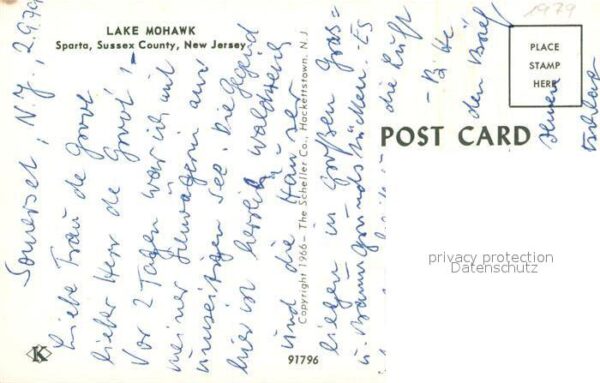 LAKE MOHAWK
Sparta, Sussex County, New Jersey
Somerset, N.J., 2.9.79
Liebe Frau de Groot
lieber Herr de Groot!
Vor 2 Tagen war ich mit
meiner Schwägerin am
umseitigen See. Die Gegend
hier ist herrlich waldreich
und die Häuser
liegen in großen Gras=
u. Baumgrundstücken. Es
die Luft
- Bitte
den Brief
1979
PLACE
STAMP
HERE
POST CARD
Copyright 1966 – The Scheller Co., Hackettstown, N.J.
privacy protection
Datenschutz
K
91796